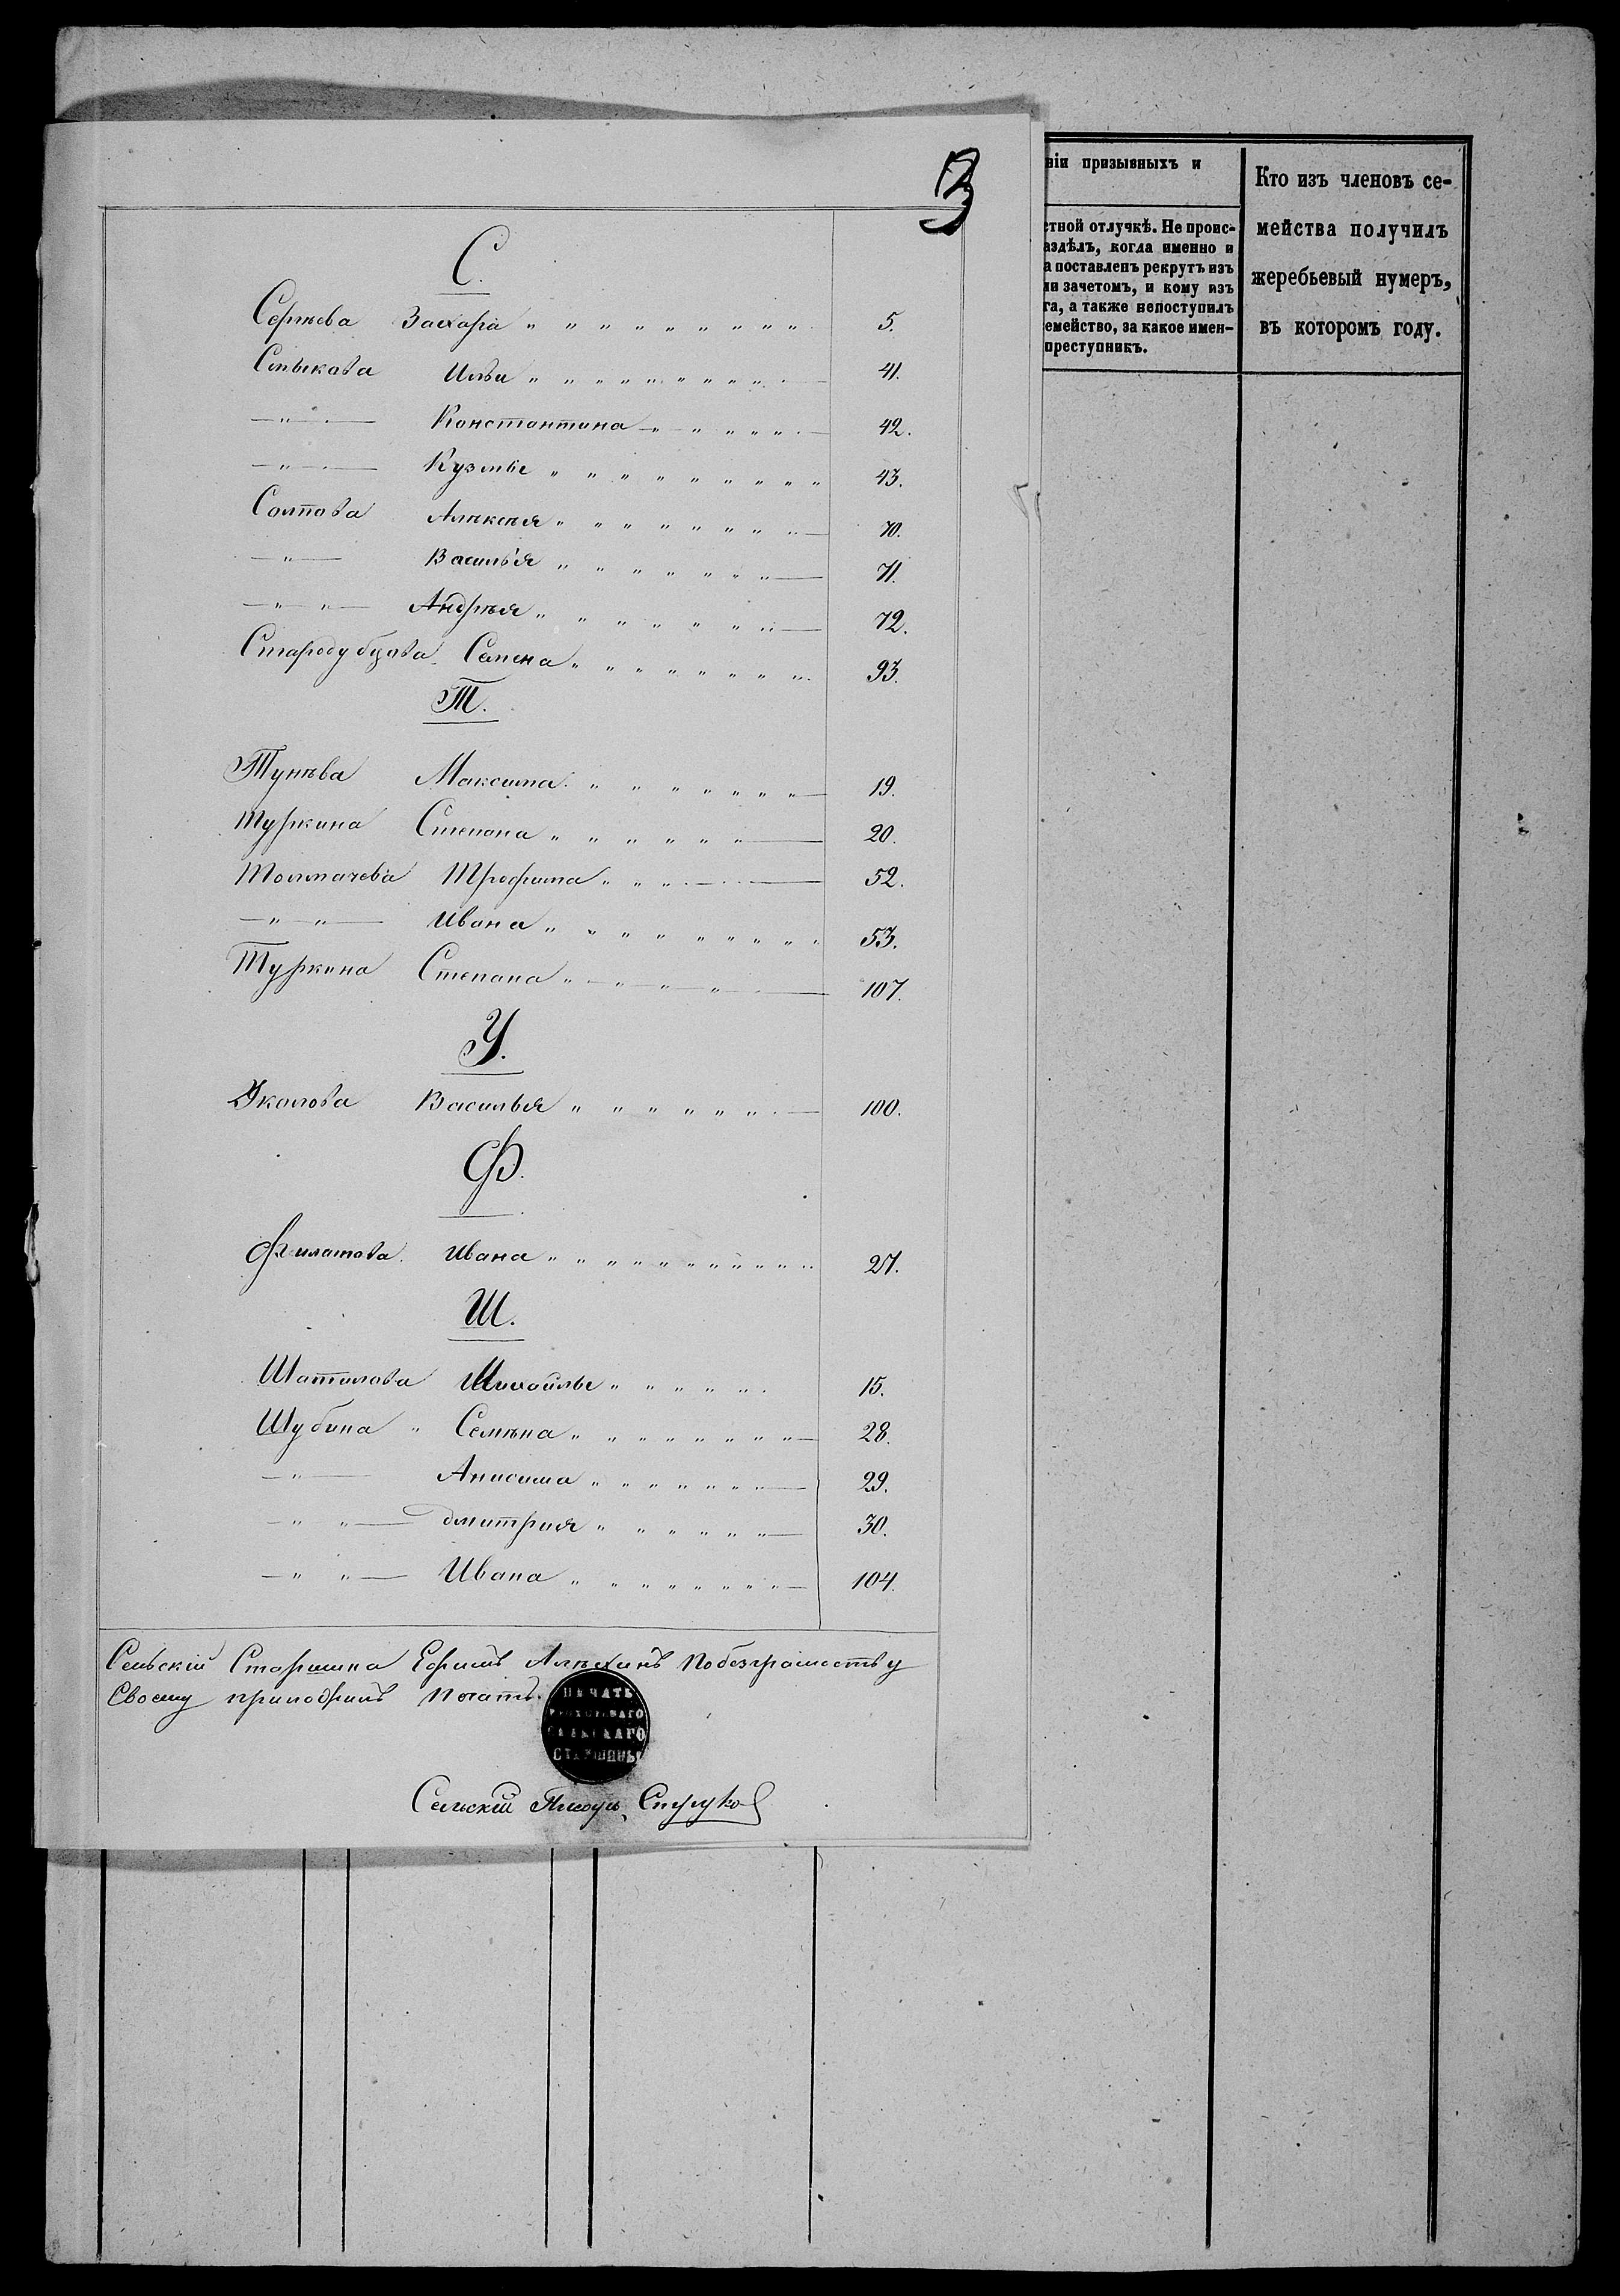 3
С.
Сергѣева Захара " " " " " " " " " 5.
Смыкова Ильи " " " " " " " " " 41.
— " — Константина — " " " " " — 42.
— " — Кузмы " " " " " " " " " 43.
Солтова Алѣксѣя " " " " " " " " — 70.
— " — Василья " " " " " " " — 71.
— " " — Андрѣя " " " " " " " — 72.
Стародубцова Семена " " " " " " " " 93.
Т.
Тунѣва Максима " " " " " " " — 19.
Туркина Степана " " " " " " — 20.
Толмачева Трофима " " " — 52.
— " " — Ивана " " " " " " " " " 53.
Туркина Степана " — " — " — " — 107.
У.
Уколова Василья " " " " " " — 100.
Ф.
Филатова Ивана " " " " " " " " " " " 27.
Ш.
Шатилова Михайлы " " " " " " 15.
Шубина " Семѣна " " " " " " " " — 28.
— " — Анисима " " " " " " " — 29.
— " " — Дмитрия " " " " " " — 30.
— " " — Ивана " " " " " " " — 104.
Сельскій Старшина Ефимъ Алѣхинъ по безграмотству
Своему приложилъ печать.
ПЕЧАТЬ
СЕЛЬСКАГО
СТАРШИНЫ
Сельскій Писарь
ніи призывныхъ и
стной отлучкѣ. Не проис-
аздѣлъ, когда именно и
а поставленъ рекрутъ изъ
ли зачетомъ, и кому изъ
га, а также непоступилъ
емейство, за какое имен-
преступникъ.
Кто изъ членовъ се-
мейства получилъ
жеребьевый нумеръ,
въ которомъ году.